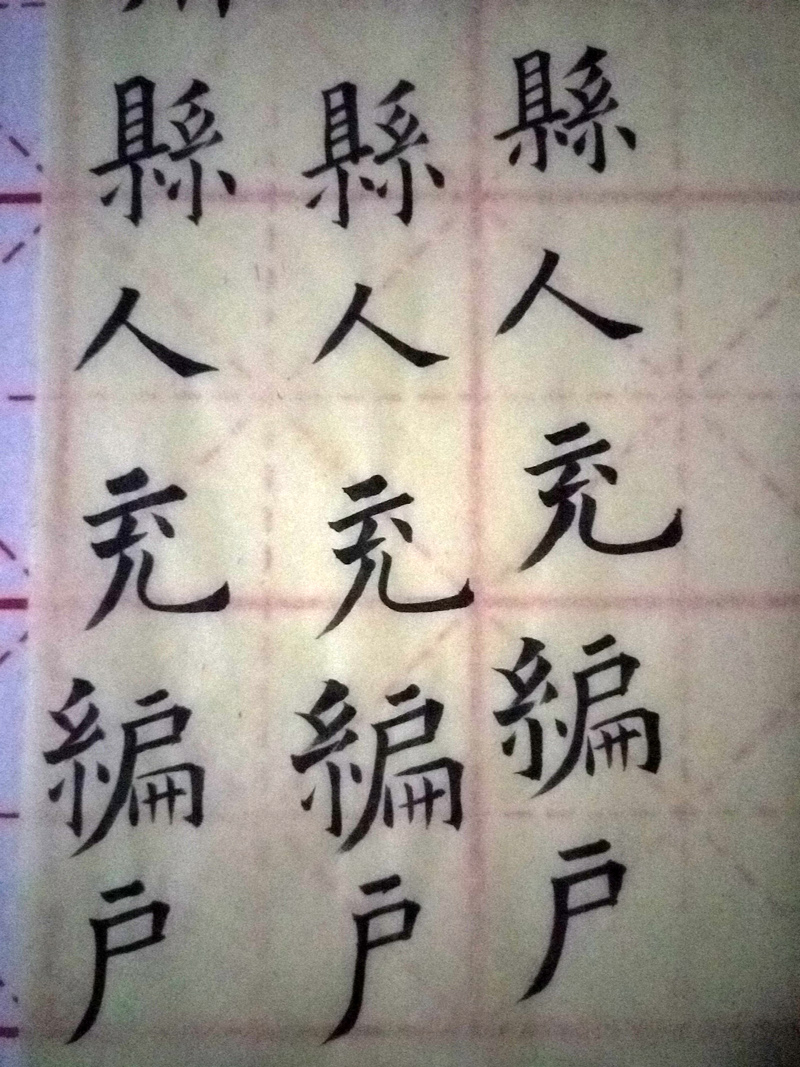 縣人充編户
縣人充編户
縣人充編户